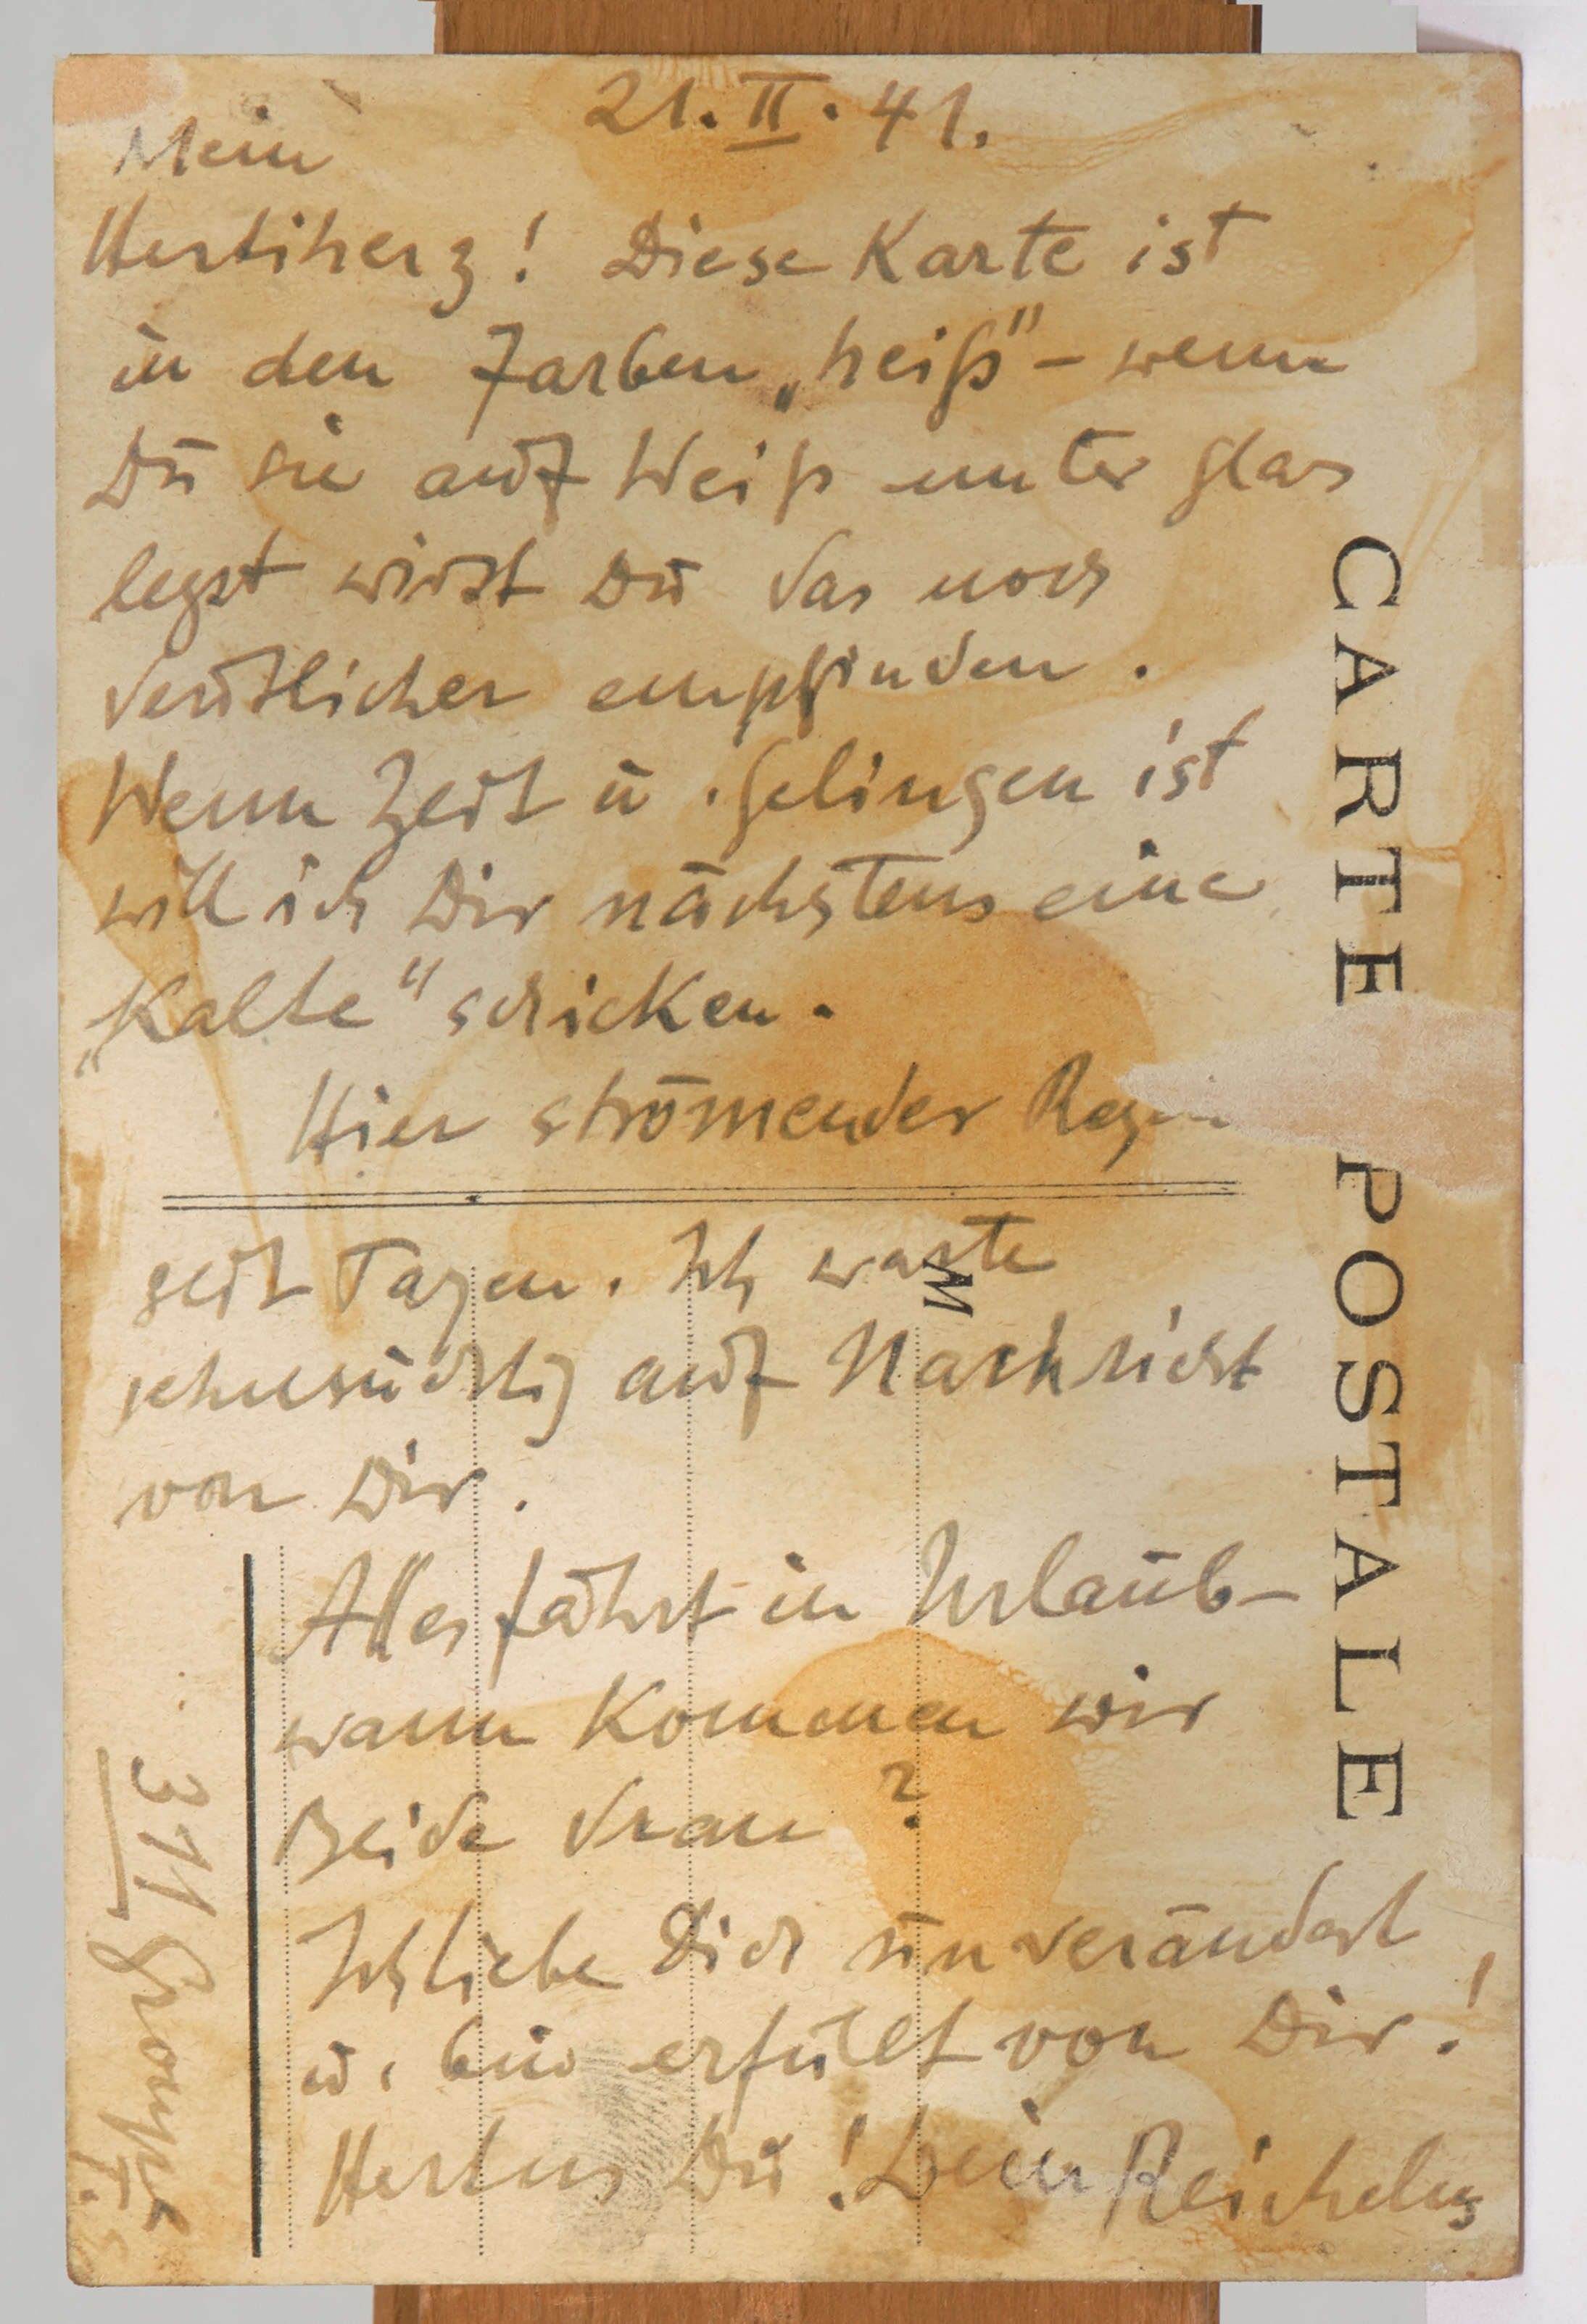 21.II.41.
Mein
Hertiherz! Diese Karte ist
in den Farben „heiß" – wenn
Du sie auf Weiß unter Glas
legst wirst Du das noch
deutlicher empfinden.
Wenn Zeit u. Gelingen ist
will ich Dir nächstens eine
„Kalte" schicken.
Hier strömender Regen
seit Tagen. Ich warte
sehnsüchtig auf Nachricht
von Dir.
Alles fährt in Urlaub –
wann kommen wir
Beide dran?
Ich liebe Dich unverändert
u. bin erfüllt von Dir!
Hertus Du! Dein Reichelus
CARTE POSTALE
M
311